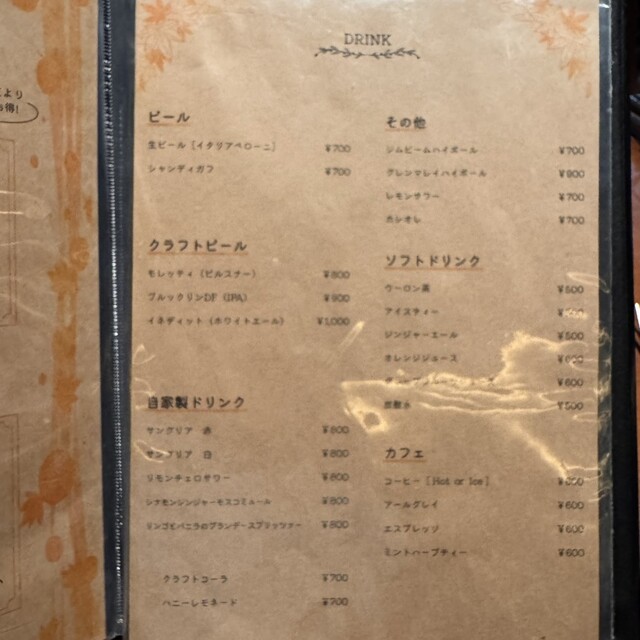 より
DRINK
ビール
生ビール [イタリアペローニ] ¥700
シャンディガフ ¥700
クラフトビール
モレッティ (ピルスナー) ¥800
ブルックリンDF (IPA) ¥900
イネディット (ホワイトエール) ¥1,000
自家製ドリンク
サングリア 赤 ¥800
サングリア 白 ¥800
リモンチェロサワー ¥800
シナモンジンジャーモスコミュール ¥800
リンゴとバニラのブランデースプリッツァー ¥800
クラフトコーラ ¥700
ハニーレモネード ¥700
その他
ジムビームハイボール ¥700
グレンマレイハイボール ¥800
レモンサワー ¥700
カシオレ ¥700
ソフトドリンク
ウーロン茶 ¥500
アイスティー
ジンジャーエール ¥500
オレンジジュース ¥600
¥600
炭酸水 ¥500
カフェ
コーヒー [Hot or Ice]
アールグレイ ¥600
エスプレッソ ¥600
ミントハーブティー ¥600